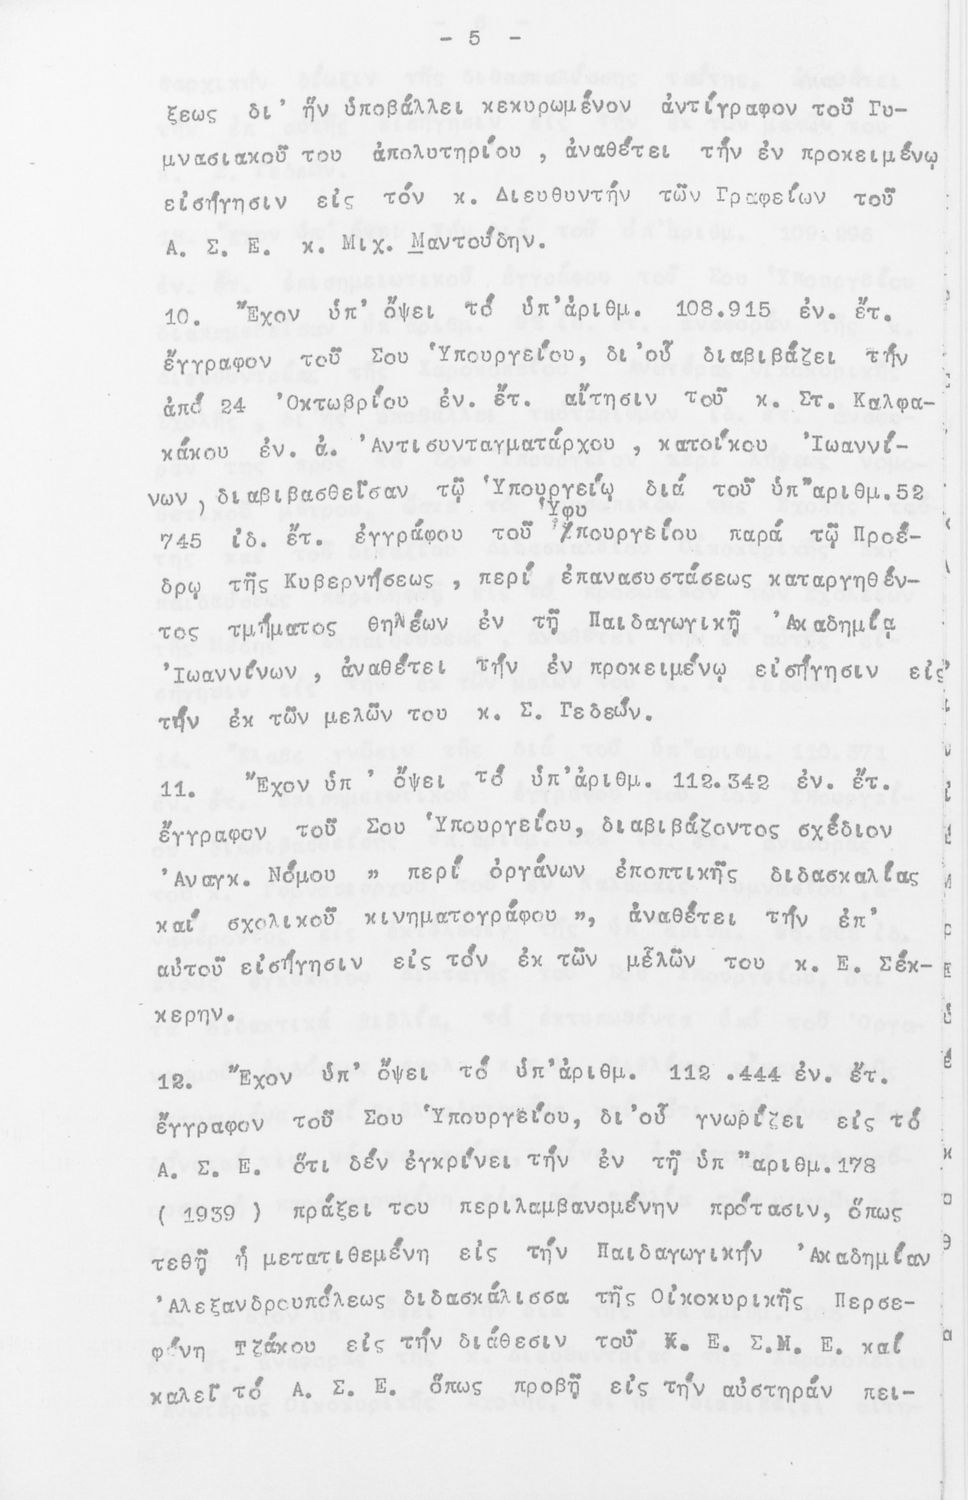 - 5 -
ξεως δι' ἥν ὑποβάλλει κεκυρωμένον ἀντίγραφον τοῦ Γυ-
μνασιακοῦ του ἀπολυτηρίου , ἀναθέτει τήν ἐν προκειμένῳ
εἰσήγησιν εἰς τόν κ. Διευθυντήν τῶν Γραφείων τοῦ
Α. Σ. Ε. κ. Μιχ. Μαντούδην.
10. Ἔχον ὑπ' ὄψει τό ὑπ'ἀριθμ. 108.915 ἐν. ἔτ.
ἔγγραφον τοῦ Σου Ὑπουργείου, δι'οὗ διαβιβάζει τήν
ἀπό 24 Ὀκτωβρίου ἐν. ἔτ. αἴτησιν τοῦ κ. Στ. Καλφα-
κάκου ἐν. ἀ. Ἀντισυνταγματάρχου , κατοίκου Ἰωαννί-
νων , διαβιβασθεῖσαν τῷ Ὑπουργείῳ διά τοῦ ὑπ"αριθμ.52
Ὑφυ
745 ἰδ. ἔτ. ἐγγράφου τοῦ Ὑπουργείου παρά τῷ Προέ-
δρῳ τῆς Κυβερνήσεως , περί ἐπανασυστάσεως καταργηθέν-
τος τμήματος θηλέων ἐν τῇ Παιδαγωγικῇ Ἀκαδημίᾳ
Ἰωαννίνων , ἀναθέτει τήν ἐν προκειμένῳ εἰσήγησιν εἰς
τήν ἐκ τῶν μελῶν του κ. Σ. Γεδεών.
11. Ἔχον ὑπ ' ὄψει τό ὑπ'ἀριθμ. 112.342 ἐν. ἔτ.
ἔγγραφον τοῦ Σου Ὑπουργείου, διαβιβάζοντος σχέδιον
Ἀναγκ. Νόμου " περί ὀργάνων ἐποπτικῆς διδασκαλίας
καί σχολικοῦ κινηματογράφου ", ἀναθέτει τήν ἐπ'
αὐτοῦ εἰσήγησιν εἰς τόν ἐκ τῶν μελῶν του κ. Ε. Σέκ-
κερην.
12. Ἔχον ὑπ' ὄψει τό ὑπ'ἀριθμ. 112 .444 ἐν. ἔτ.
ἔγγραφον τοῦ Σου Ὑπουργείου, δι'οὗ γνωρίζει εἰς τό
Α. Σ. Ε. ὅτι δέν ἐγκρίνει τήν ἐν τῇ ὑπ "αριθμ.178
( 1939 ) πράξει του περιλαμβανομένην πρότασιν, ὅπως
τεθῇ ἡ μετατιθεμένη εἰς τήν Παιδαγωγικήν Ἀκαδημίαν
Ἀλεξανδρουπόλεως διδασκάλισσα τῆς Οἰκοκυρικῆς Περσε-
φόνη Τζάκου εἰς τήν διάθεσιν τοῦ Κ. Ε. Σ.Μ. Ε. καί
καλεῖ τό Α. Σ. Ε. ὅπως προβῇ εἰς τήν αὐστηράν πει-